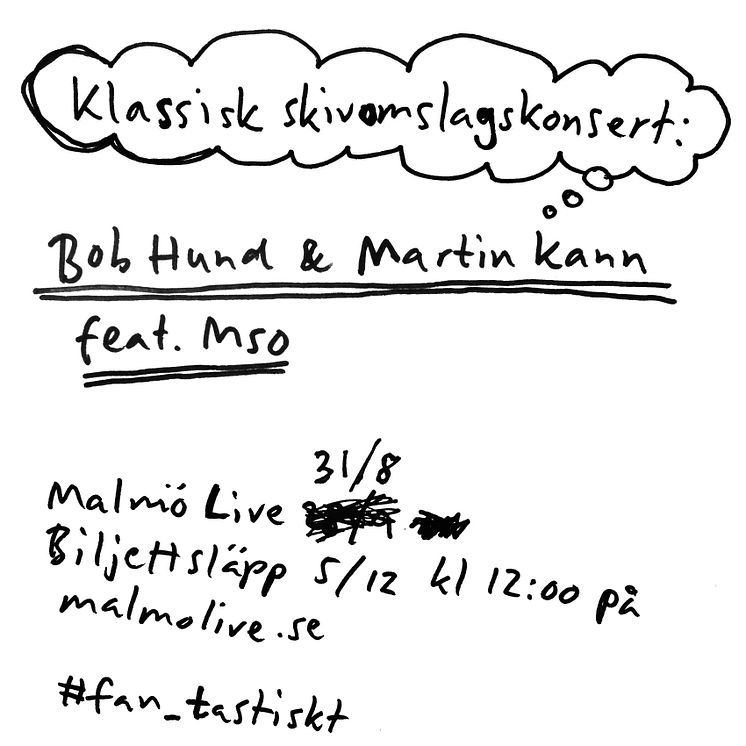 Klassisk skivomslagskonsert:
Bob Hund & Martin Kann
feat. MSO
31/8
Malmö Live
Biljettsläpp 5/12 kl 12:00 på
malmolive.se
#fan_tastiskt